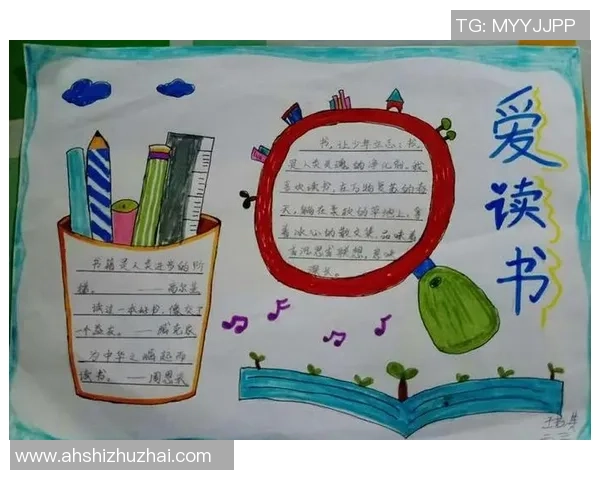 TG: MYYJJPP
爱读书
书，让少年立志；书，
是人类灵魂的净化剂。我
喜欢读书，在万物复苏的春
天，躺在柔软的草地上，拿
着冰心的散文集，品味着
书籍是人类进步的阶
梯。——高尔基
读过一本好书，像交了
一个益友。——臧克家
为中华之崛起而
读书。——周恩来
www.ahshizhuzhai.com